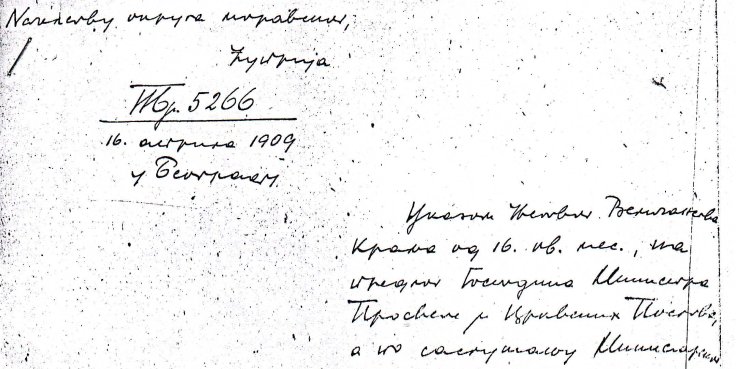 Началству округа моравског,
Ћуприја
ПБр. 5266
16. априла 1909
у Београду
Указом Његовог Величанства
Краља од 16. ов. мес., на
предлог Господина Министра
Просвете и Црквених Послова,
а по саслушању Министарског